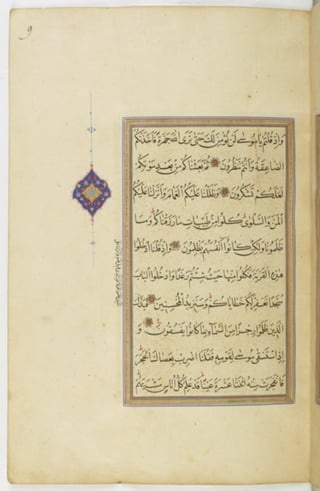 9
وَإِذْ قُلْتُمْ يَا مُوسَىٰ لَنْ نُؤْمِنَ لَكَ حَتَّىٰ نَرَى اللَّهَ جَهْرَةً فَأَخَذَتْكُمُ
الصَّاعِقَةُ وَأَنْتُمْ تَنْظُرُونَ ثُمَّ بَعَثْنَاكُمْ مِنْ بَعْدِ مَوْتِكُمْ
لَعَلَّكُمْ تَشْكُرُونَ وَظَلَّلْنَا عَلَيْكُمُ الْغَمَامَ وَأَنْزَلْنَا عَلَيْكُمُ
الْمَنَّ وَالسَّلْوَىٰ كُلُوا مِنْ طَيِّبَاتِ مَا رَزَقْنَاكُمْ وَمَا
ظَلَمُونَا وَلَٰكِنْ كَانُوا أَنْفُسَهُمْ يَظْلِمُونَ وَإِذْ قُلْنَا ادْخُلُوا
هَٰذِهِ الْقَرْيَةَ فَكُلُوا مِنْهَا حَيْثُ شِئْتُمْ رَغَدًا وَادْخُلُوا الْبَابَ
سُجَّدًا نَغْفِرْ لَكُمْ خَطَايَاكُمْ وَسَنَزِيدُ الْمُحْسِنِينَ فَبَدَّلَ
الَّذِينَ ظَلَمُوا رِجْزًا مِنَ السَّمَاءِ بِمَا كَانُوا يَفْسُقُونَ وَ
إِذِ اسْتَسْقَىٰ مُوسَىٰ لِقَوْمِهِ فَقُلْنَا اضْرِبْ بِعَصَاكَ الْحَجَرَ
فَانْفَجَرَتْ مِنْهُ اثْنَتَا عَشْرَةَ عَيْنًا قَدْ عَلِمَ كُلُّ أُنَاسٍ مَشْرَبَهُمْ